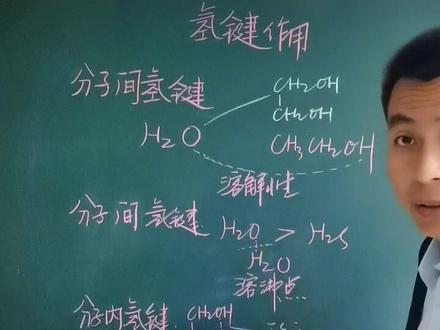 氢键作用
分子间氢键
CH₂OH
CH₂OH
H₂O
CH₃CH₂OH
溶解性
分子间氢键 H₂O > H₂S
H₂O
溶沸点
分子内氢键 CH₂OH